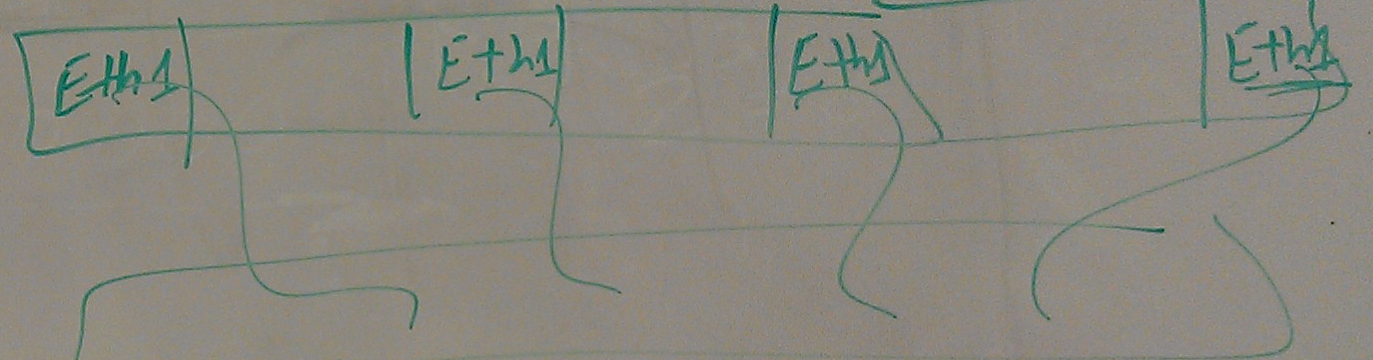 Eth1 Eth1 Eth1 Eth1